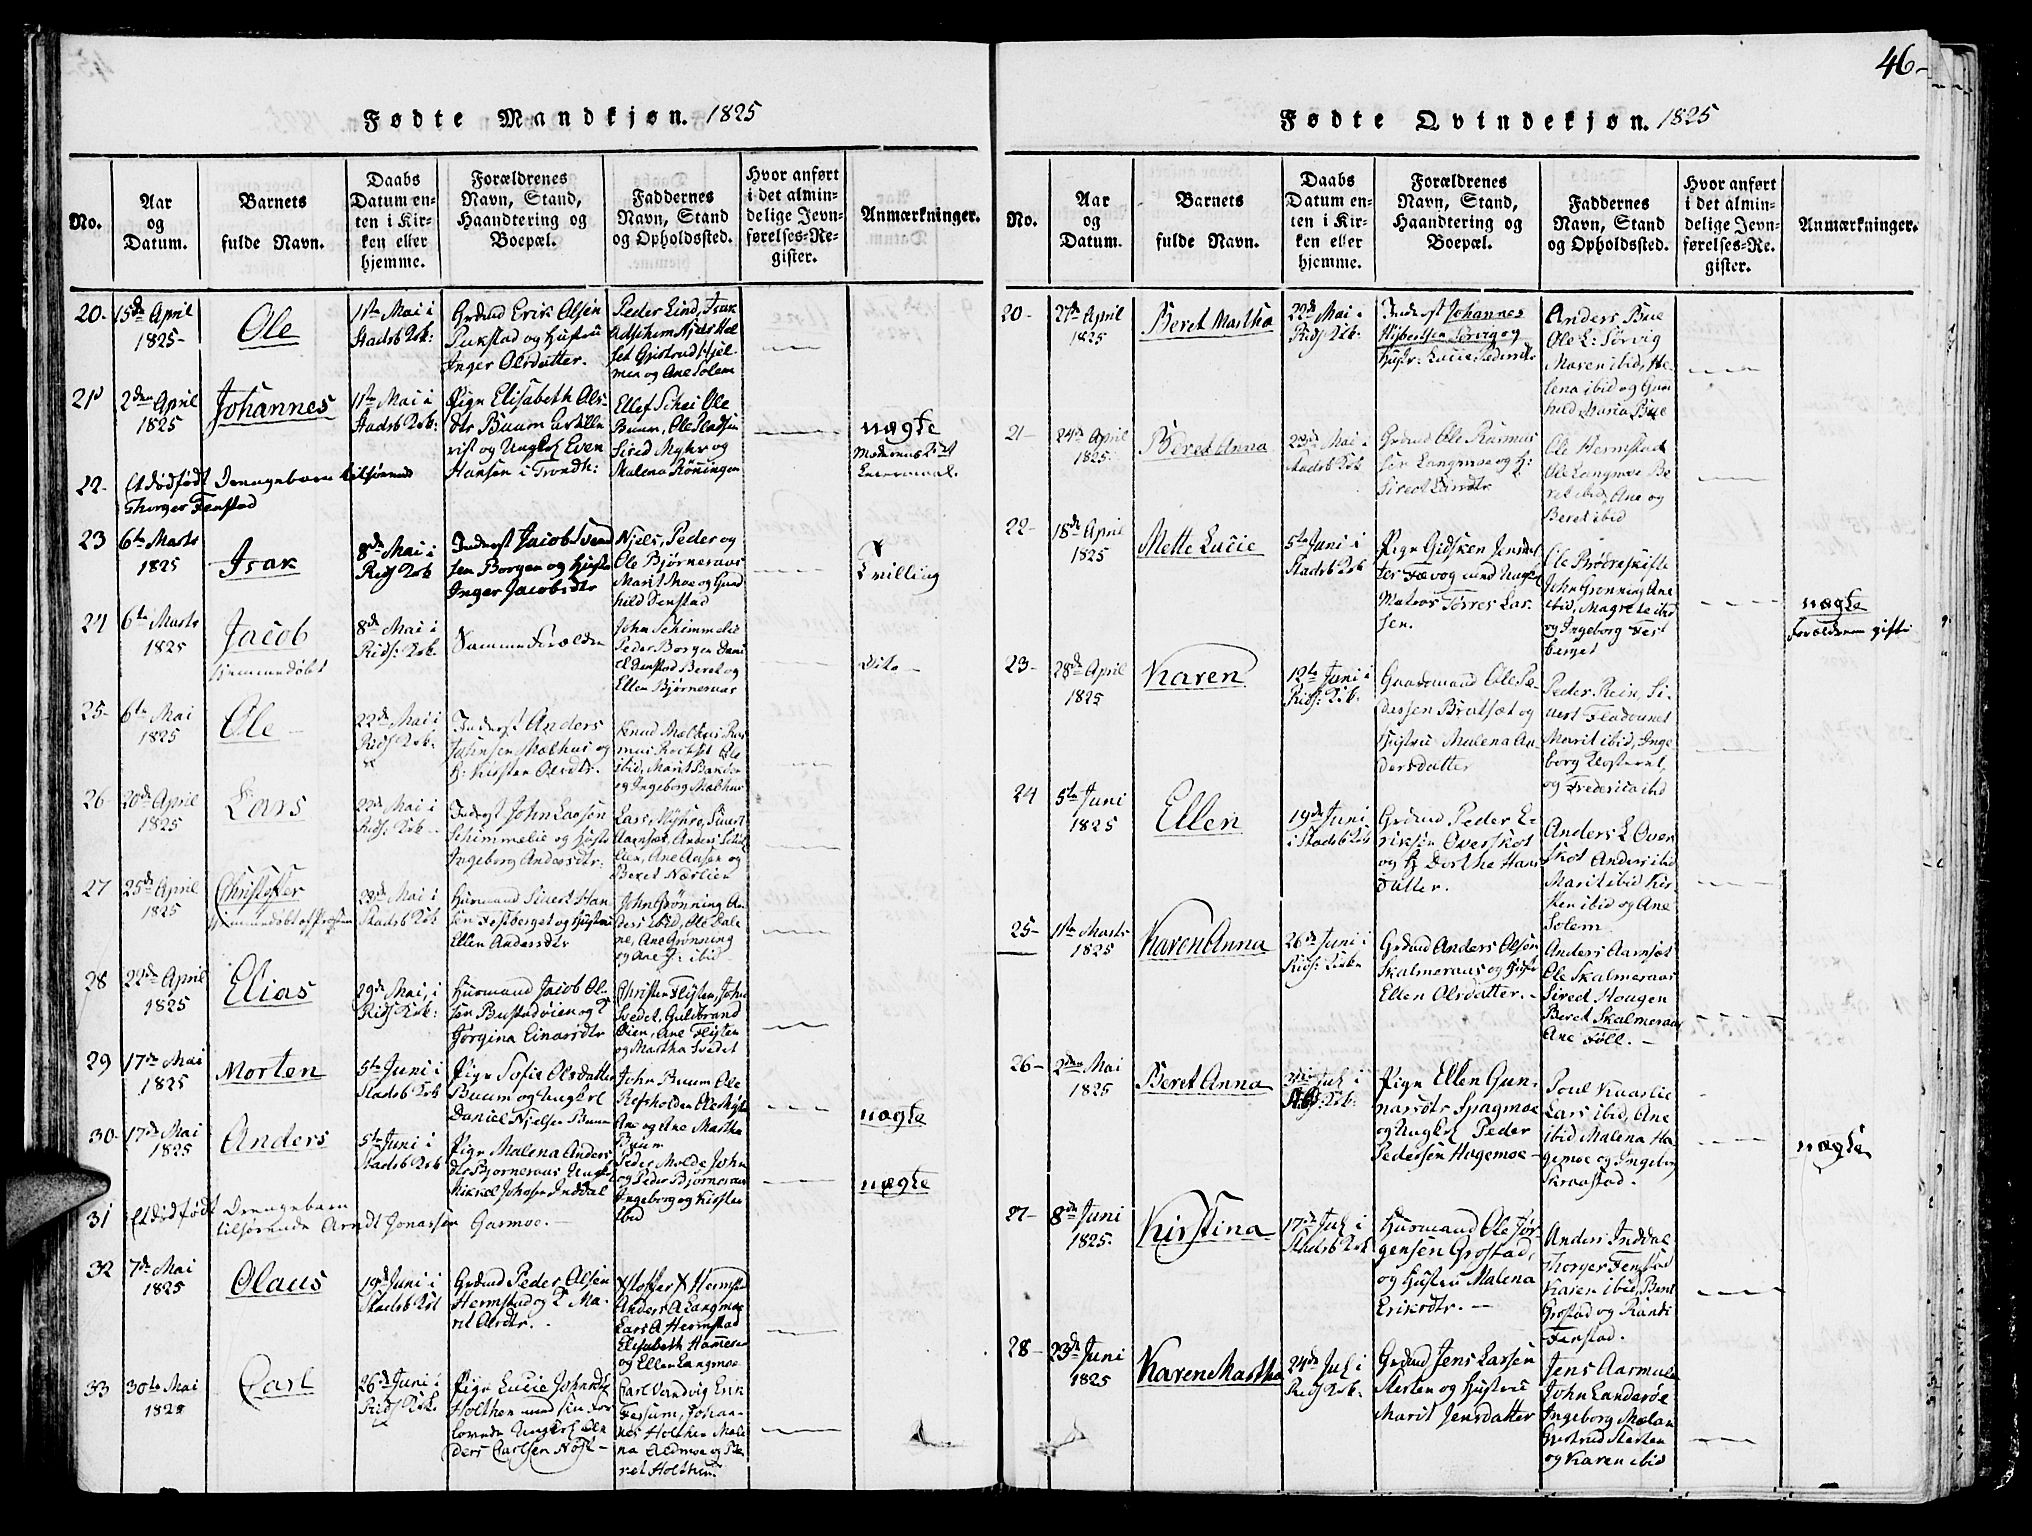 46-
Fødte Mandkjøn. 1825
No.
Aar
og
Datum.
Barnets
fulde Navn.
Daabs
Datum en-
ten i Kir-
ken eller
hjemme.
Forældrenes
Navn, Stand,
Haandtering og
Boepæl.
Faddernes
Navn, Stand
og Opholdssted.
Hvor anført
i det almin-
delige Jevn-
førelses-Re-
gister.
Anmærkninger.
20-
15de April
1825-
Ole
1ste Mai i
Stadsb Krk:
Grdmd Erik Olsen
og Hustru
Inger Olsdatter.
Peder Lind, Isak
Njels
men og Ane Solem
21
2den April
1825
Johannes
11te Mai i
Stadsb Krk:
Pige Elisabeth Ols-
dtr Buum
og Ungkrl Even
Hansen i Trondh:
Ellef Ole
Buum, Ole
Sired Myhr og
Malena Röningen
nægte
22-
Et dödfödt Drengebarn tilhörende
Thorger Fenstad
23
6te Marts
1825
Isak
8de Mai i
Rids Krk
Inderst Jacob Svend
sen Borgen og Hustr
Inger Jacobsdtr
Njels, Peder og
Ole Bjørneraas
Marit Moe og Gun
hild Denstad
Tvilling
24
6te Marts
1825
Jacob
hjemmedöbt
8de Mai i
Rids: Krk.
Samme Forældre
John Schimmelie
Peder Borgen Dani
el Denstad Beret og
Ellen Bjørneraas
Dito -
25-
6te Mai
1825
Ole
22de Mai i
Rids Krk-
Inderst Anders
Johnsen Mælhus og
H: Kirsten Olsdtr.
Knud Mælhus Ras
mus Ole
ibid, Marit
og Ingeborg Mælhus
26
20de April
1825
Lars
22de Mai i
Rids: Krk-
Inderst John Larsen
Schimmelie og Hustr
Ingeborg Andersdtr:
Lars Myhre, Siuert
Aarnset, Anders
lien, Ane Aasen og
Beret Nærlien
27
25de April
1825
Christofer
23de Mai i
Stadsb Krk
Huusmand Siuert Han
sen Festberget og Hustru
Ellen Andersdtr
John Grønning An-
ders ibid, Ole Dale
ne, Ane Grønning
og Ane ibid
28
22de April
1825
Elias
29de Mai, i
Rids Krk:
Huusmand Jacob Ol-
sen Bustadöien og
Jørgina Einarsdtr
Christen Flÿten, John
Svedet, Guldbrand
Öien, Ane Flÿten
og Martha Svedet
29
17de Mai
1825
Morten
5te Juni i
Stadsb Krk
Pige Sofie Olsdatter
Buum og Ungkrl
Daniel Njelsen Buum
John Buum Ole
Refsholden Ole
Ane og Ane Martha
Buum
nægte
30-
17de Mai
1825
Anders
5te Juni i
Stadsb Krk
Pige Malena Anders
dtr Bjørneraas Ungkrl
Mikkel Johnsen Inddal
Peder Molde John
og Peder Bjørneraas
Ingeborg og Kirsten
ibid
nægte
31
Et dödfödt Drengebarn
tilhörende Arndt Jonassen Garmoe. -
32
7de Mai
1825
Olaus
19de Juni i
Stadsb Krk
Grdmd Peder Olsen
Hermstad og Ma-
rit Olsdtr.
Hermstad
Anders A Langmoe
Lars A Hermstad
Elisabeth
og Ellen Langmoe
33
30te Mai
1825
Carl
26de Juni i
Rids Krk.
Pige Lucie Johnsdtr
Holthen med sin For
lovede Ungkrl
ders Carlsen
Carl Vandvig Erik
Fessum, Johan-
nes Holthen Male-
na Aldmoe og Be-
ret Holthen
Fødte Qvindekjøn. 1825
No.
Aar
og
Datum.
Barnets
fulde Navn.
Daabs
Datum en-
ten i Kir-
ken eller
hjemme.
Forældrenes
Navn, Stand,
Haandtering og
Boepæl.
Faddernes
Navn, Stand
og Opholdssted.
Hvor anført
i det almin-
delige Jevn-
førelses-Re-
gister.
Anmærkninger.
20-
27de April
1825
Beret Martha
22de Mai i
Rids Krk:
Inderst Johannes
Sørvig og
Hustr: Lucie Pedersdtr
Anders Bue
Ole L: Sørvig
Maren ibid, He-
lena ibid og Gun
hild Maria Bue
21-
24de April
1825
Beret Anna
23de Mai i
Stadsb Krk
Grdmd Ole Rasmus
sen Langmoe og H:
Siret Larsdtr
Ole Hermstad
Ole Langmoe Be
ret ibid, Ane og
Beret ibid
22-
18de April
1825
Mette Lucie
5te Juni i
Stadsb Krk
Pige Gidsken Jensdat
ter Fævog med Ungkrl
Matros Torres Lar-
sen.
Ole Brødreskift
John Grønning Ane
ibid, Magrete ibid
og Ingeborg Fest
berget
nægte
Forældrene gifte
23-
28de April
1825
Karen
12te Juni i
Rids: Krk-
Gaardmand Ole Pe-
dersen Bratsæt og
Hustru Malena An-
dersdatter
Peder Rein, Si-
uert Fladaunet
Marit ibid, Inge
borg
og Frederica ibid
24
5te Juni
1825
Ellen
19de Juni
i Stadsb Krk
Grdmd Peder E-
riksen Overskot
og H Dorthe Hans
datter.
Anders L Over
skot Anders ibid
Marit ibid Kir-
sten ibid og Ane
Solem
25-
11te Marts
1825
Karen Anna
26de Juni i
Rids: Kirke
Grdmd Anders Olsen
Skalmeraas og Hustr
Ellen Olsdatter. -
Anders Aarnset
Ole Skalmeraas
Sired Haagen
Beret Skalmeraas
Ane Föll. -
26-
2den Mai
1825
Beret Anna
Juli i
Krk:
Pige Ellen Gun-
narsdtr Spagmoe
og Ungkrl Peder
Pedersen Hagemoe -
Poul Kaarlie
Lars ibid, Ane
ibid Malena Ha-
gemoe og Ingebor
Skraastad.
nægte
27-
8de Juni
1825.
Kirstina
17de Jul i
Stadsb Krk
Huusmand Ole Jør-
gensen Grostad,
og Hustru Malena
Eriksdtr. -
Anders Inddal
Thorger Fenstad
Karen ibid, Berit
Grostad og Randi
Fenstad.
28-
23de Juni
1825
Karen Martha
24de Jul i
Rids Krk.
Grdmd Jens Larsen
Sterten og Hustru
Marit Jensdatter
Jens Aarmule
John Landeröe
Ingeborg Mælan
Gjertrud Sterten
og Karen ibid